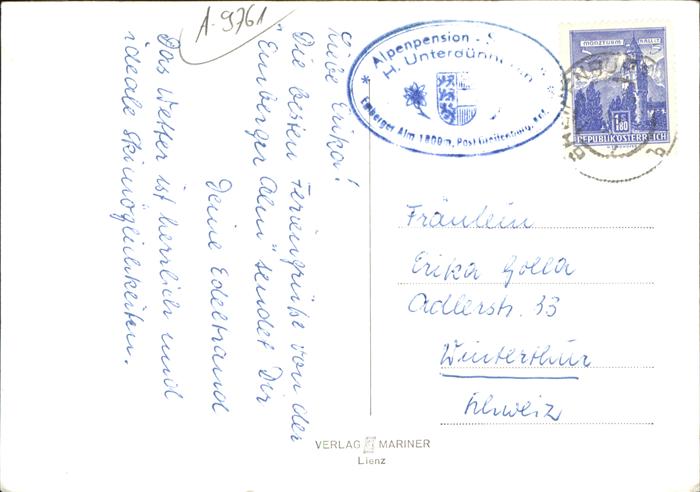 A-9761
Liebe Erika!
Die besten Feriengrüße von der
"Emberger Alm" sendet Dir
Deine Edeltraud
Das Wetter ist herrlich und
ideale Skimöglichkeiten.
Alpenpension -
H. Unterdün
Emberger Alm 1800m, Post Greifenburg,
MÜNZTURM HALL i. T.
1.80
REPUBLIK ÖSTERREICH
Fräulein
Erika Golla
Adlerstr. 33
Winterthur
Schweiz
VERLAG MARINER
Lienz